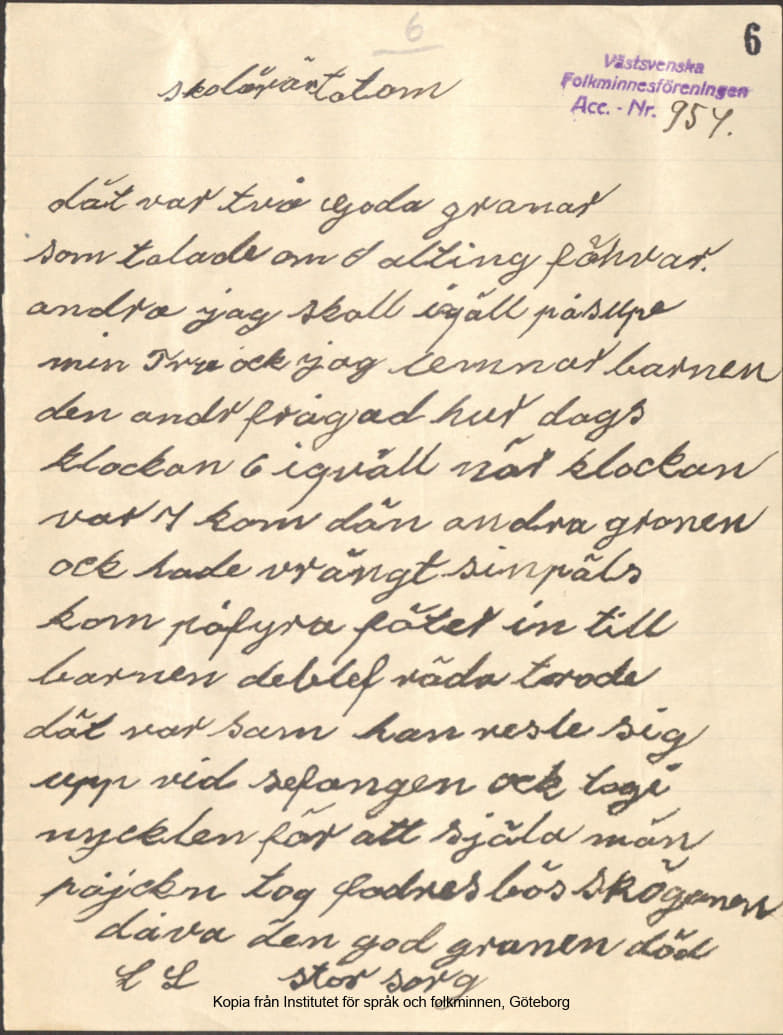 6
6
Västsvenska
Folkminnesföreningen
Acc. - Nr. 954.
skolärärtatom
dät var två goda granar
som talade om alting föhvar.
andra jag skall igäll påsupe
min Fru ock jag lemnar barnen
den andr frågad hur dags
klockan 6 igväll när klockan
var 7 kom dän andra granen
ock hade vrängt sin päls
kom påfyra föter in till
barnen deblef räda trode
dät var han reste sig
upp vid sefangen ock togi
nycklen för att själa män
påjckn tog fadres bös sköganen
dåva den god granen död
L L stor sorg
Kopia från Institutet för språk och folkminnen, Göteborg